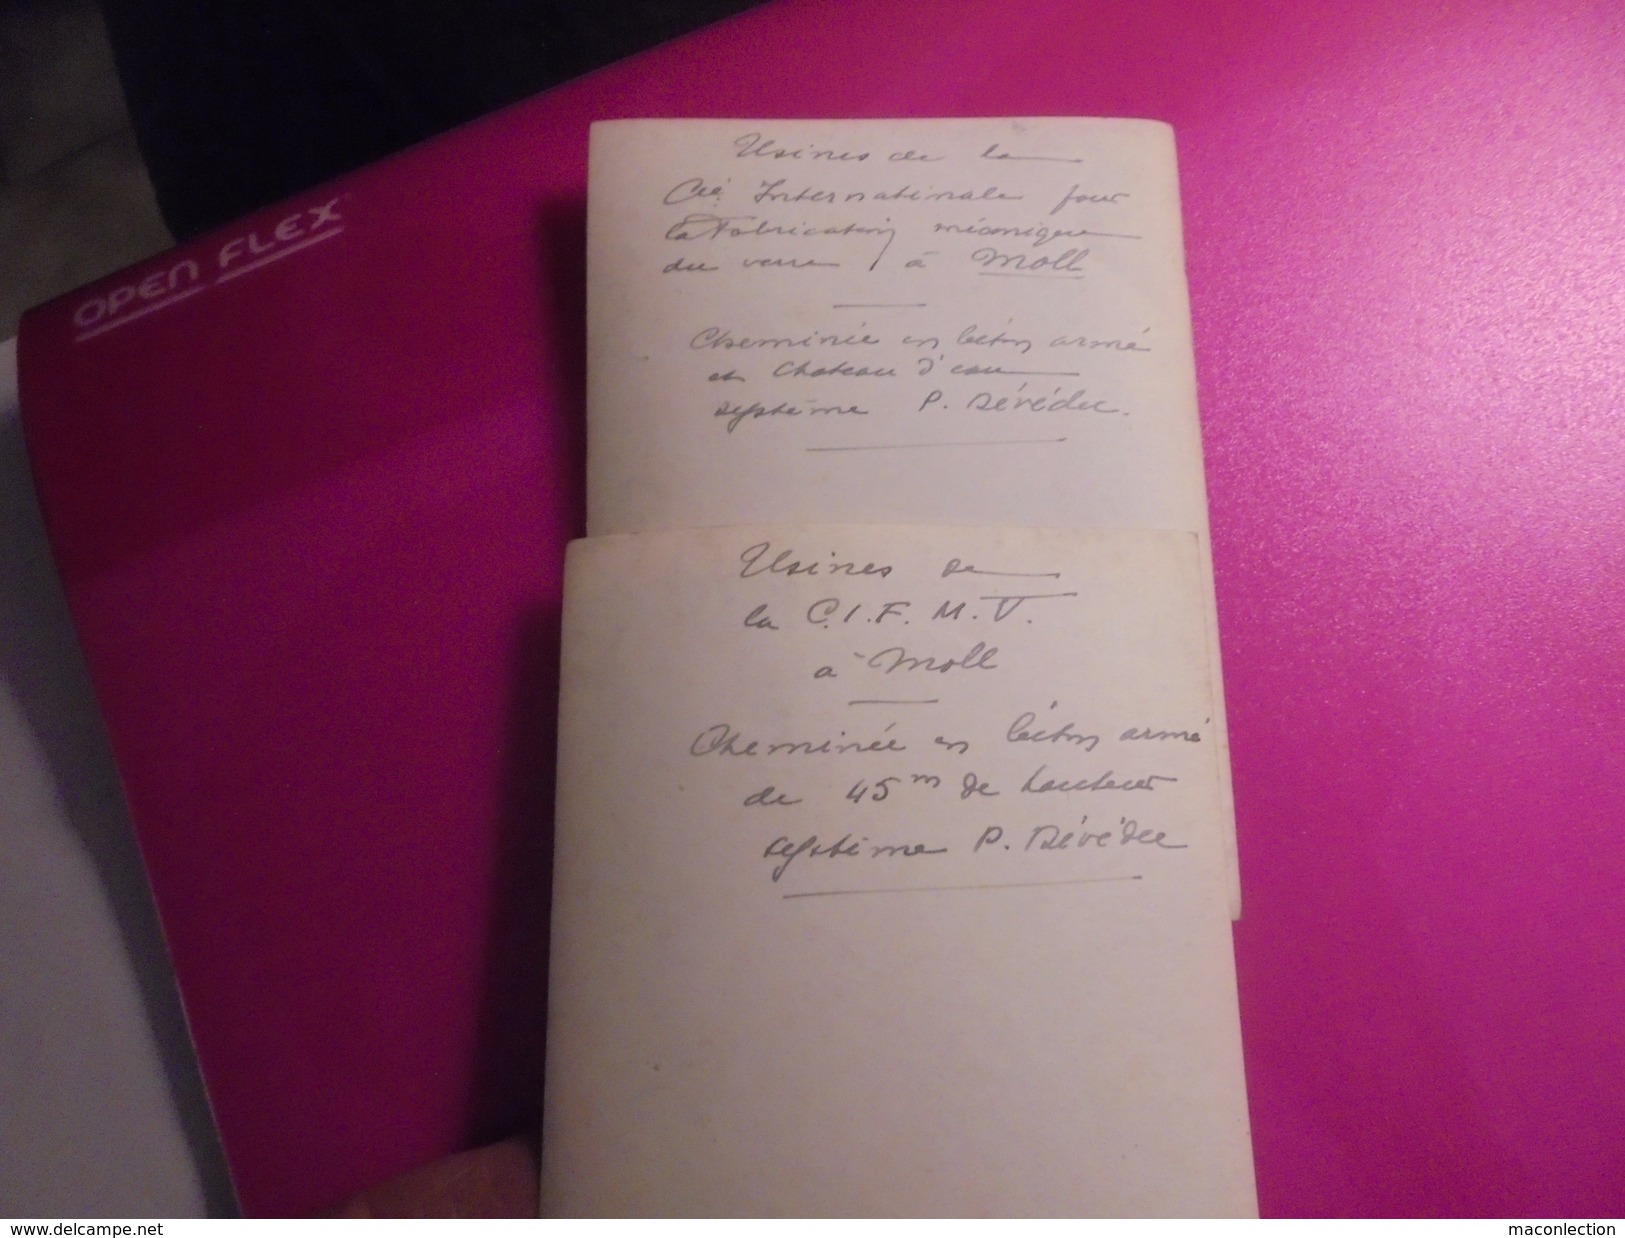 OPEN FLEX
Usines de la
Cie Internationale pour
la Fabrication mécanique
du verre, à Moll
Cheminée en béton armé
et Chateau d'eau
système P. Dévédec.
Usines de
la C.I.F.M.V.
à Moll
Cheminée en béton armé
de 45m de hauteur
système P. Dévédec
www.delcampe.net
maconlection